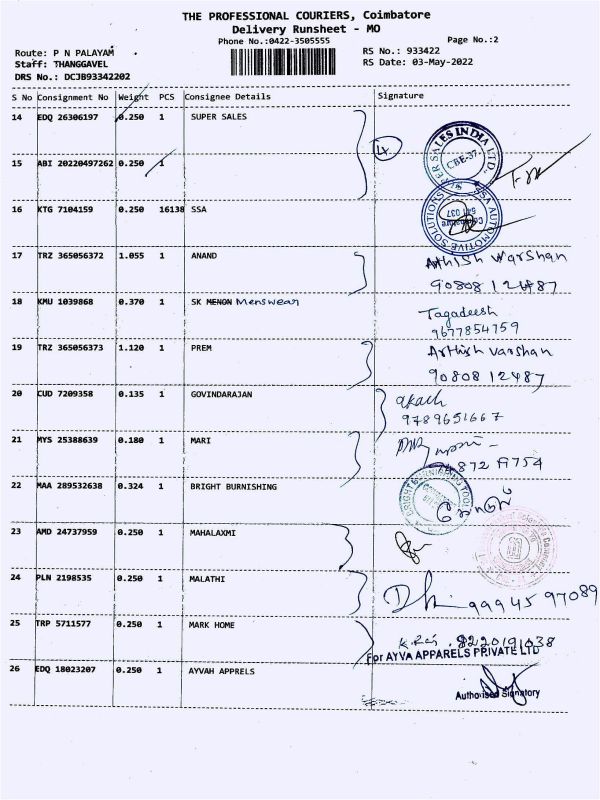 THE PROFESSIONAL COURIERS, Coimbatore
Delivery Runsheet - MO
Phone No.:0422-3505555
Page No.:2
Route: P N PALAYAM
RS No.: 933422
Staff: THANGGAVEL
RS Date: 03-May-2022
DRS No.: DCJB93342202
S No Consignment No Weight PCS Consignee Details Signature
14 EDQ 26306197 0.250 1 SUPER SALES
4
SUPER SALES INDIA LTD.
CBE-37
15 ABI 20220497262 0.250 1
16 KTG 7104159 0.250 16138 SSA
SSA AUTOMOTIVE SOLUTIONS
Coimbatore
641 037
17 TRZ 365056372 1.055 1 ANAND
Athish Warshan
90808 12487
18 KMU 1039868 0.370 1 SK MENON Menswear
Tagadeesh
9677854759
19 TRZ 365056373 1.120 1 PREM
Arthish varshan
9080812487
20 CUD 7209358 0.135 1 GOVINDARAJAN
akash
9789651667
21 MYS 25388639 0.180 1 MARI
872 A754
22 MAA 289532638 0.324 1 BRIGHT BURNISHING
BRIGHT BURNISHING TOOLS
23 AMD 24737959 0.250 1 MAHALAXMI
24 PLN 2198535 0.250 1 MALATHI
99945 97089
25 TRP 5711577 0.250 1 MARK HOME
K. Raj 8220191038
For AYVA APPARELS PRIVATE LTD
26 EDQ 18023207 0.250 1 AYVAH APPRELS
Authorised Signatory